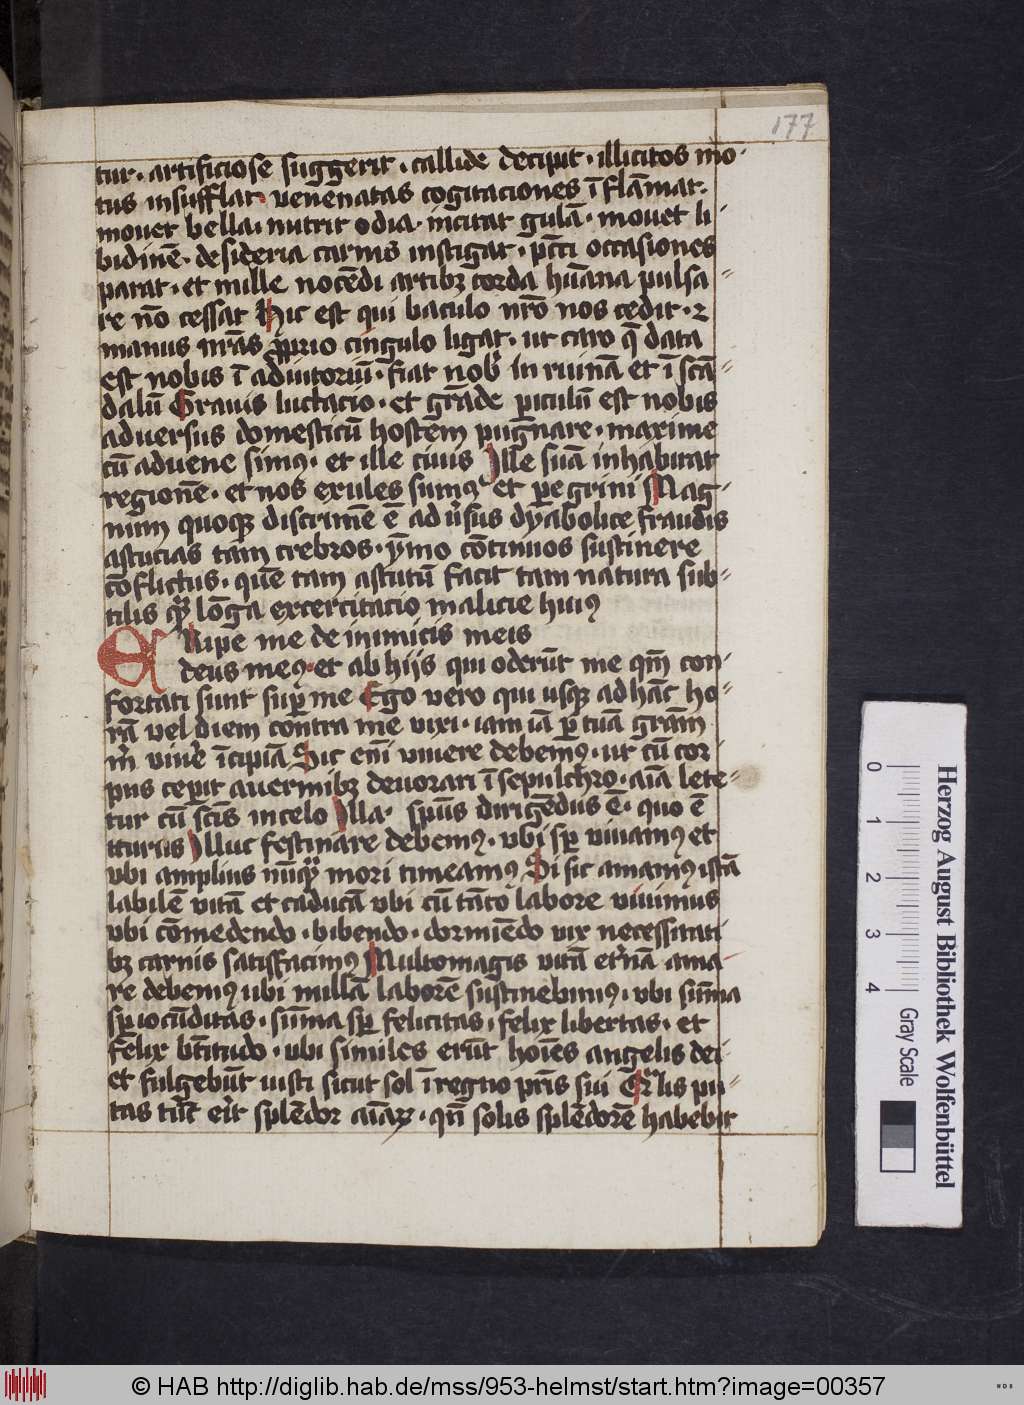 177
tur · artificiose suggerit · callide decipit · illicitos mo·
tus insufflat · venenatas cogitaciones ī flāmat·
mouet bella · nutrit odia · incitat gulā · mouet li-
bidinē · desideria carnis instigat · pctī occasiones
parat · et mille nocēdi artibꝫ corda hūana pulsa=
re nō cessat Hic est qui baculo nrō nos cedit · ⁊
manus nrās ꝓprio cingulo ligat · ut caro q̄ data
est nobis ī adiutoriū · fiat nob̉ in ruinā et ī scā=
dalū Grauis luctacio · et grāde ꝑiculū est nobis
aduersus domesticū hostem pugnare · maxime
cū aduene simꝰ · et ille ciuis Ille suā inhabitat
regionē · et nos exules sumꝰ et ꝑegrini Mag-
num quoqꝫ discrimē ē aduˀsus dyabolice fraudis
astucias tam crebros · ymo cōtinuos sustinere
cōflictus · quē tam astutū facit tam natura sub=
tilis qͣꝫ lōga excercitacio malicie huiꝰ
ERipe me de inimicis meis
deus meꝰ · et ab hijs qui oderūt me qm̄ con-
fortati sunt suꝑ me Ego vero qui usqꝫ ad hāc ho=
rā vel diem contra me vixi · iam iā ꝑ tuā grām
m̄ viuˀe īcipiā Sic em̄ viuere debemꝰ · ut cū cor-
pus ceperit a vermibꝫ deuorari ī sepulchro · aīa lete=
tur cū scīs in celo Illa · spūs dirigēdus ē · quo ē
iturus Illuc festinare debemꝰ · vbi sꝑ viuamꝰ et
vbi amplius nūqͣꝫ mori timeamꝰ Si sic amamꝰ istā
labilē vitā et caducā vbi cū tāto labore viuimus
vbi cōmedendo · bibendo · dormiēdo vix necessitati
bꝫ carnis satisfacimꝰ Multomagis vitā etˀnā ama-
re debemꝰ ubi nullā laborē sustinebimꝰ · vbi sūma
sꝑ iocūditas · sūma sꝑ felicitas · felix libertas · et
felix btītudo · vbi similes erūt hoīes angelis dei ·
et fulgebūt iusti sicut sol ī regno pr̄is sui Qͣlis pu=
tas tūc eˀit splēdor aīaꝝ · qn̄ solis splēdorē habebit
Herzog August Bibliothek Wolfenbüttel
0 1 2 3 4
Gray Scale
© HAB http://diglib.hab.de/mss/953-helmst/start.htm?image=00357